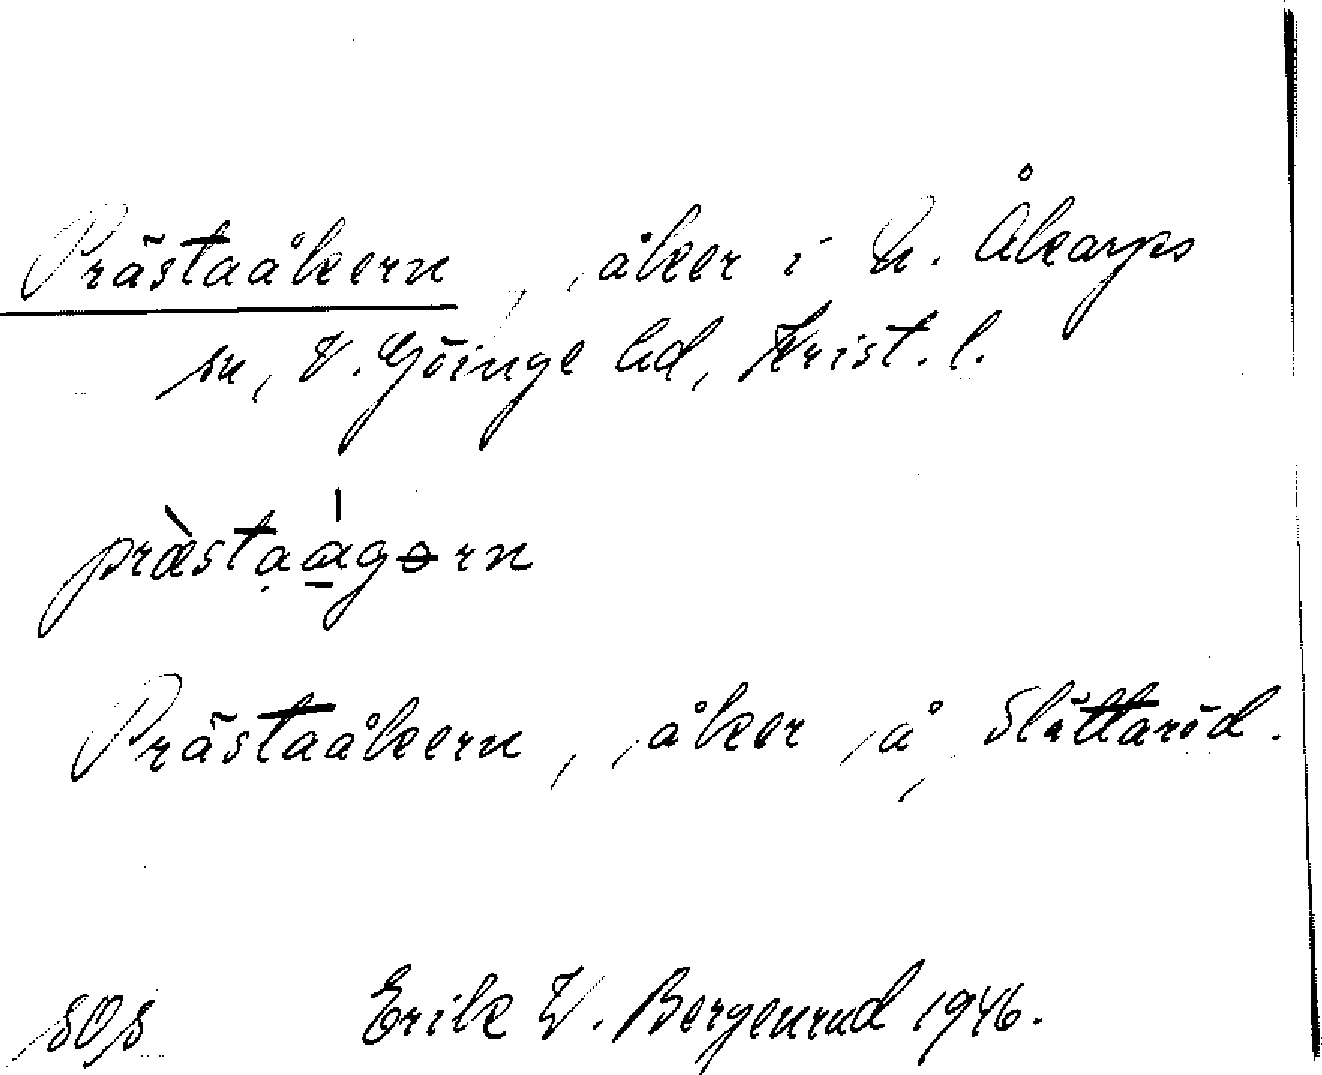 Prästaåkern, åker i N. Åkarps
sn, V. Göinge hd, Krist. l.
præ̀staágərn
Prästaåkern, åker å Slättaröd.
Erik W. Bergenrud 1946.